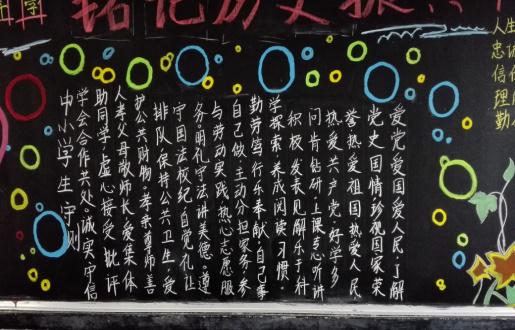 铭记历史 振兴
爱党爱国爱人民·了解
党史国情·珍视国家荣
誉热爱祖国热爱人民
热爱共产党·好学多
问肯钻研·上课专心听讲
积极发表见解乐于科
学探索·养成阅读习惯·
勤劳笃行乐奉献·自己事
自己做·主动分担家务·参
与劳动实践热心志愿服
务·明礼守法讲美德·遵
守国法校纪自觉礼让
排队保持公共卫生爱
护公共财物·孝亲尊师善
人孝父母敬师长爱集体
助同学·虚心接受批评
学会合作共处·诚实守信
中小学生守则